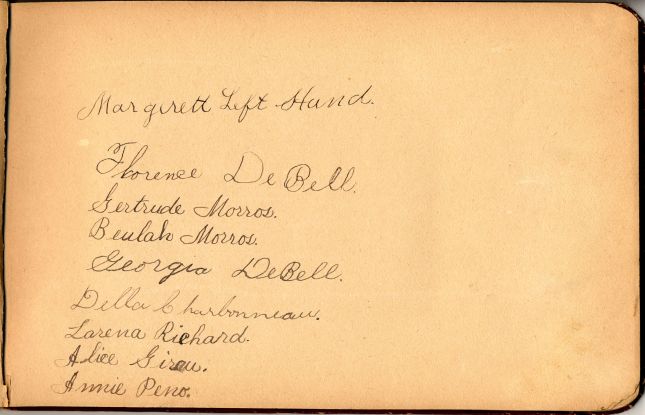 Margirett Left Hand.
Florence DeBell.
Gertrude Morros.
Beulah Morros.
Georgia DeBell.
Della Charbonneau.
Larena Richard.
Alice
Annie Peno.